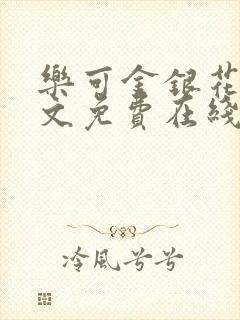 樂可金銀花
文免費在綫
冷風兮兮